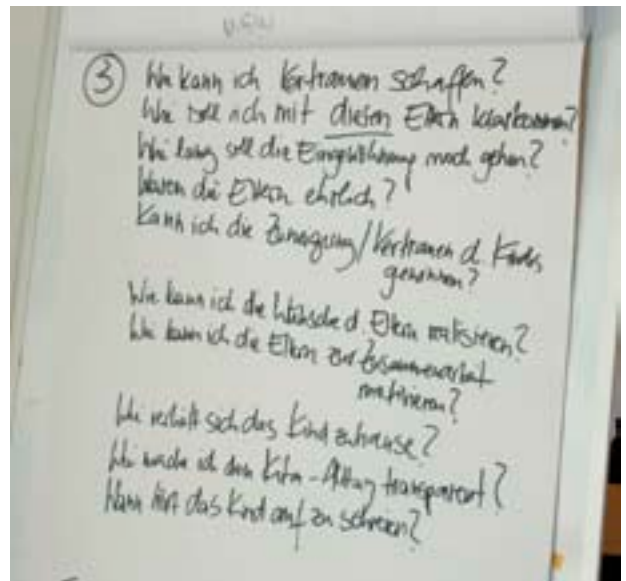 ③ Wie kann ich Vertrauen schaffen?
Wie soll ich mit diesen Eltern klarkommen?
Wie lang soll die Eingewöhnung noch gehen?
Waren die Eltern ehrlich?
Kann ich die Zuneigung/Vertrauen d. Kindes
gewinnen?
Wie kann ich die Wünsche d. Eltern realisieren?
Wie kann ich die Eltern zur Zusammenarbeit
motivieren?
Wie verhält sich das Kind zuhause?
Wie mache ich den Kita-Alltag transparent?
Wann hört das Kind auf zu schreien?